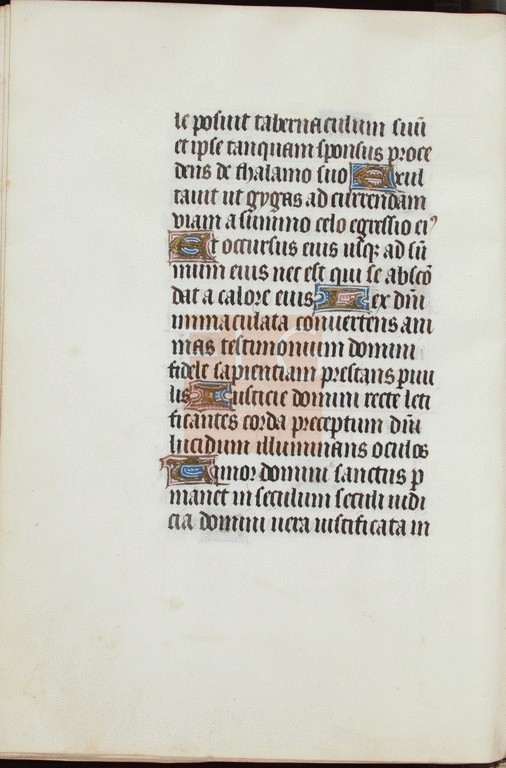 le posuit tabernaculum suū
et ipse tanquam sponsus proce
dens de thalamo suo Exul
tauit ut gygas ad currendam
viam a summo celo egressio eiꝰ
Et occursus eius usqꝫ ad sū
mum eius nec est qui se abscō
dat a calore eius Lex dn̄i
immaculata conuertens ani
mas testimonium domini
fidele sapientiam prestans paruu
lis Iusticie domini recte leti
ficantes corda preceptum dn̄i
lucidum illuminans oculos
Timor domini sanctus ꝑ
manet in seculum seculi iudi
cia domini uera iustificata in